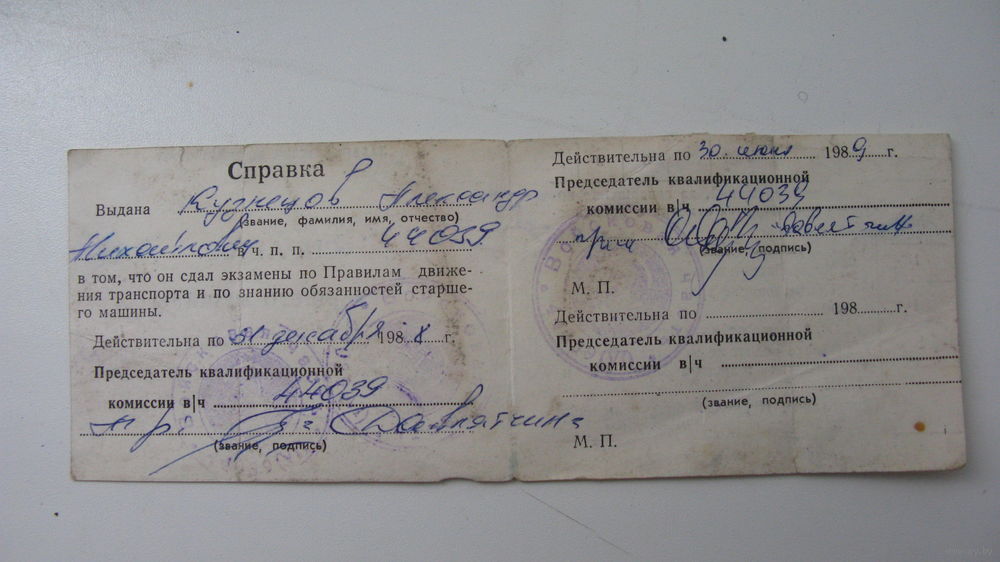 Справка
Выдана Кузнецов Александр
(звание, фамилия, имя, отчество)
Михайлович в/ч. п. п. 44039
в том, что он сдал экзамены по Правилам движе-
ния транспорта и по знанию обязанностей старше-
го машины.
Действительна по 31 декабря 1988 г.
Председатель квалификационной
комиссии в/ч 44039
пр.
(звание, подпись)
Действительна по 30 июня 1989 г.
Председатель квалификационной
комиссии в/ч 44039
(звание, подпись)
М. П.
Действительна по 198 г.
Председатель квалификационной
комиссии в/ч
(звание, подпись)
М. П.